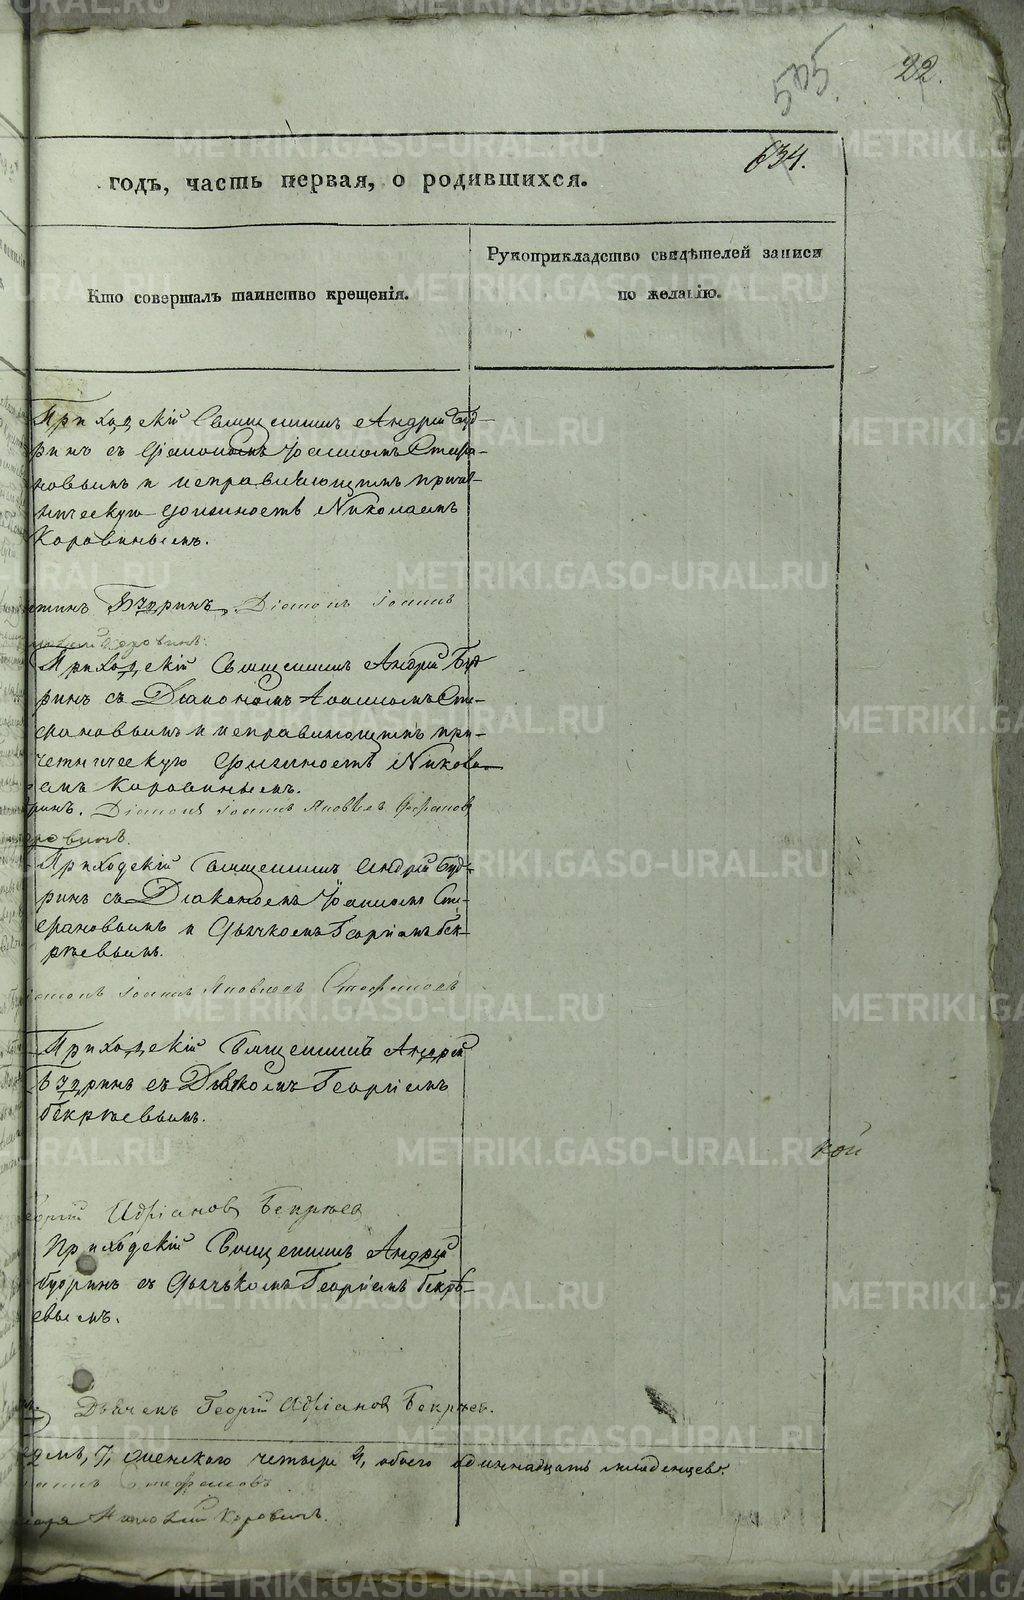 505.
22.
634.
годъ, часть первая, о родившихся.
Кто совершалъ таинство крещенія.
Рукоприкладство свидѣтелей записи
по желанію.
Приходскій Священникъ Андрей Буд-
ринъ съ Діакономъ Іоанномъ Стефа-
новымъ и исправляющимъ причет-
ническую должность Николаемъ
Коровинымъ.
Будринъ, Діаконъ Іоаннъ
Коровинъ.
Приходскій Священникъ Андрей Буд
ринъ съ Діакономъ Іоанномъ Сте-
фановымъ и исправляющимъ при-
четническую должность Никола-
емъ Коровинымъ.
ринъ. Діаконъ Іоаннъ Яковлев Стефанов
ровинъ.
Приходскій Священникъ Андрей Буд-
ринъ съ Діакономъ Іоанномъ Сте-
фановымъ и Дьячкомъ Георгіемъ Бек-
рѣевымъ.
іаконъ Іоаннъ Яковлевъ Стефановъ
Приходскій Священникъ Андрей
Будринъ съ Дьячкомъ Георгіемъ
Бекрѣевымъ.
кой
еоргій Адріановъ Бекрѣев
Приходскій Священникъ Андрей
Будринъ съ Дьячькомъ Георгіемъ Бекрѣ-
евымъ.
Дьячекъ Георгій Адріанов Бекрѣев.
седмь, 7, женского четыре 4, обоего одиннадцать младенцевъ.
Стефановъ
Коровинъ.
METRIKI.GASO-URAL.RU